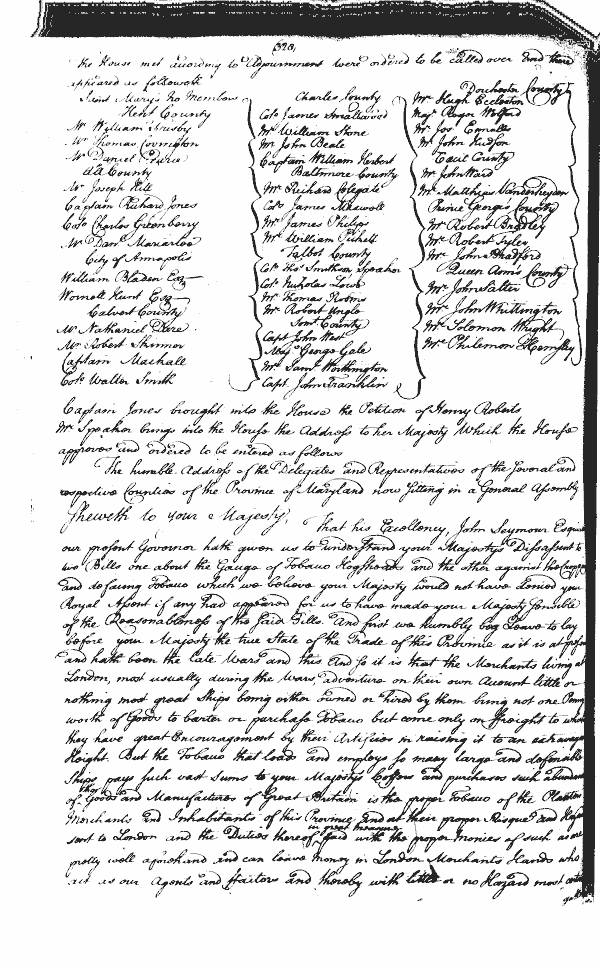 (323)
The House met according to Adjournment were ordered to be called over And there
appeared as followeth
Saint Marys No Members
Kent County
Mr William Frisby
Mr Thomas Covington
Mr Daniel Pearce
AA County
Mr Joseph Hill
Captain Richard Jones
Colo Charles Greenberry
Mr Danl Mariartee
City of Annapolis
William Bladen Esq
Wornell Hunt Esq
Calvert County
Mr Nathaniel Dare
Mr Robert Skinner
Captain Mackall
Colo Walter Smith
Charles County
Colo James Smallwood
Mr William Stone
Mr John Beale
Captain William Herbert
Baltimore County
Mr Richard Colegate
Colo James Maxwell
Mr James Philips
Mr William Pickett
Talbot County
Colo Thos Smithson Speaker
Colo Nicholas Lowe
Mr Thomas Robins
Mr Robert Ungle
Somt County
Capt John West
Majr George Gale
Mr Saml Worthington
Capt John Franklin
Dorchester County
Mr Hugh Eccleston
Majr Roger Wolford
Mr Jos Ennalls
Mr John Hudson
Cecil County
Mr John Ward
Mr Matthias Vanderheyden
Prince Georges County
Mr Robert Bradley
Mr Robert Tyler
Mr John Bradford
Queen Anns County
Mr John Salter
Mr John Whittington
Mr Solomon Wright
Mr Philemon Hemsley
Captain Jones brought into the House the Petition of Henry Roberts
Mr Speaker brings into the House the Address to her Majesty Which the House
approves and ordered to be entered as follows
The humble Address of the Delegates and Representatives of the Several and
respective Counties of the Province of Maryland now Sitting in a General Assembly
Sheweth to your Majesty, That his Excellency, John Seymour Esquire
our present Governor hath given us to understand your Majestys Dissassent to
two Bills one about the Gauge of Tobacco Hogsheads and the other against the
and defacing Tobacco which we believe your Majesty would not have denied your
Royal Assent if any had appeared for us to have made your Majesty sensible
of the Reasonableness of the said Bills And first we humbly beg Leave to lay
before your Majesty the true State of the Trade of this Province as it is at present
and hath been the late Wars and this And so it is that the Merchants living at
London, most usually during the Wars, adventure on their own Account little or
nothing most great Ships being either owned or hired by them bring not one Penny
worth of Goods to barter or purchase Tobacco but come only on ffreight to which
they have great Encouragement by their Artifices in raising it to an extravagant
Height. But the Tobacco that loads and employs so many large and defensible
Ships pays such vast Sums to your Majestys Coffers and purchases such abundance
of the Goods and Manufactures of Great Britain is the proper Tobacco of the Planters
Merchants and Inhabitants of this Province and at their proper Risque and
sent to London and the Duties thereof in great measure paid with the proper Monies of such as are
pretty well aforehand and can leave Money in London Merchants Hands who
act as our Agents and ffactors and thereby with little or no Hazard most